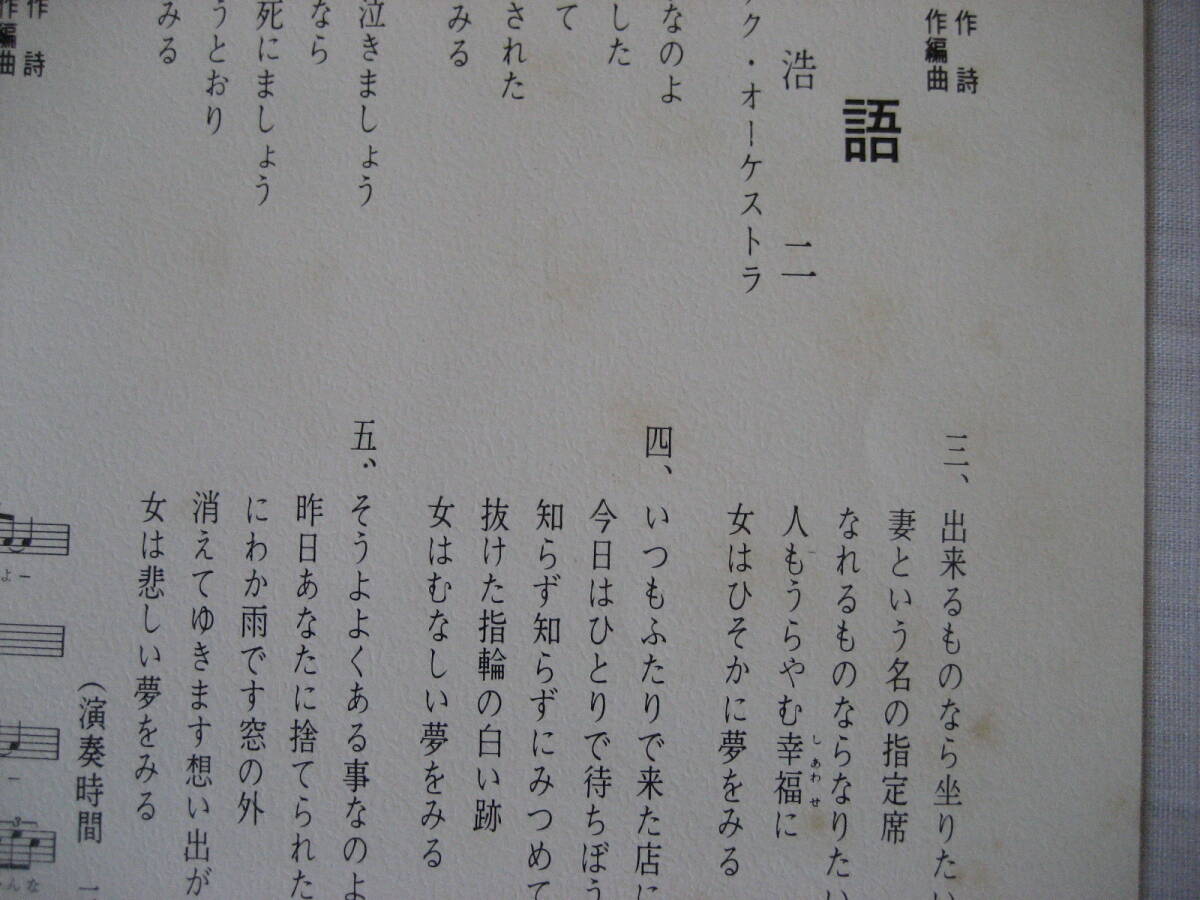 作詩
作編曲
語
浩二
ク・オーケストラ
なのよ
した
て
された
みる
泣きましょう
なら
死にましょう
うとおり
みる
作詩
作編曲
三、出来るものなら坐りたい
妻という名の指定席
なれるものならなりたい
人もうらやむ幸福に
しあわせ
女はひそかに夢をみる
四、いつもふたりで来た店に
今日はひとりで待ちぼう
知らず知らずにみつめて
抜けた指輪の白い跡
女はむなしい夢をみる
五、そうよよくある事なのよ
昨日あなたに捨てられた
にわか雨です窓の外
消えてゆきます想い出が
女は悲しい夢をみる
(演奏時間
よー
ー
3
んな